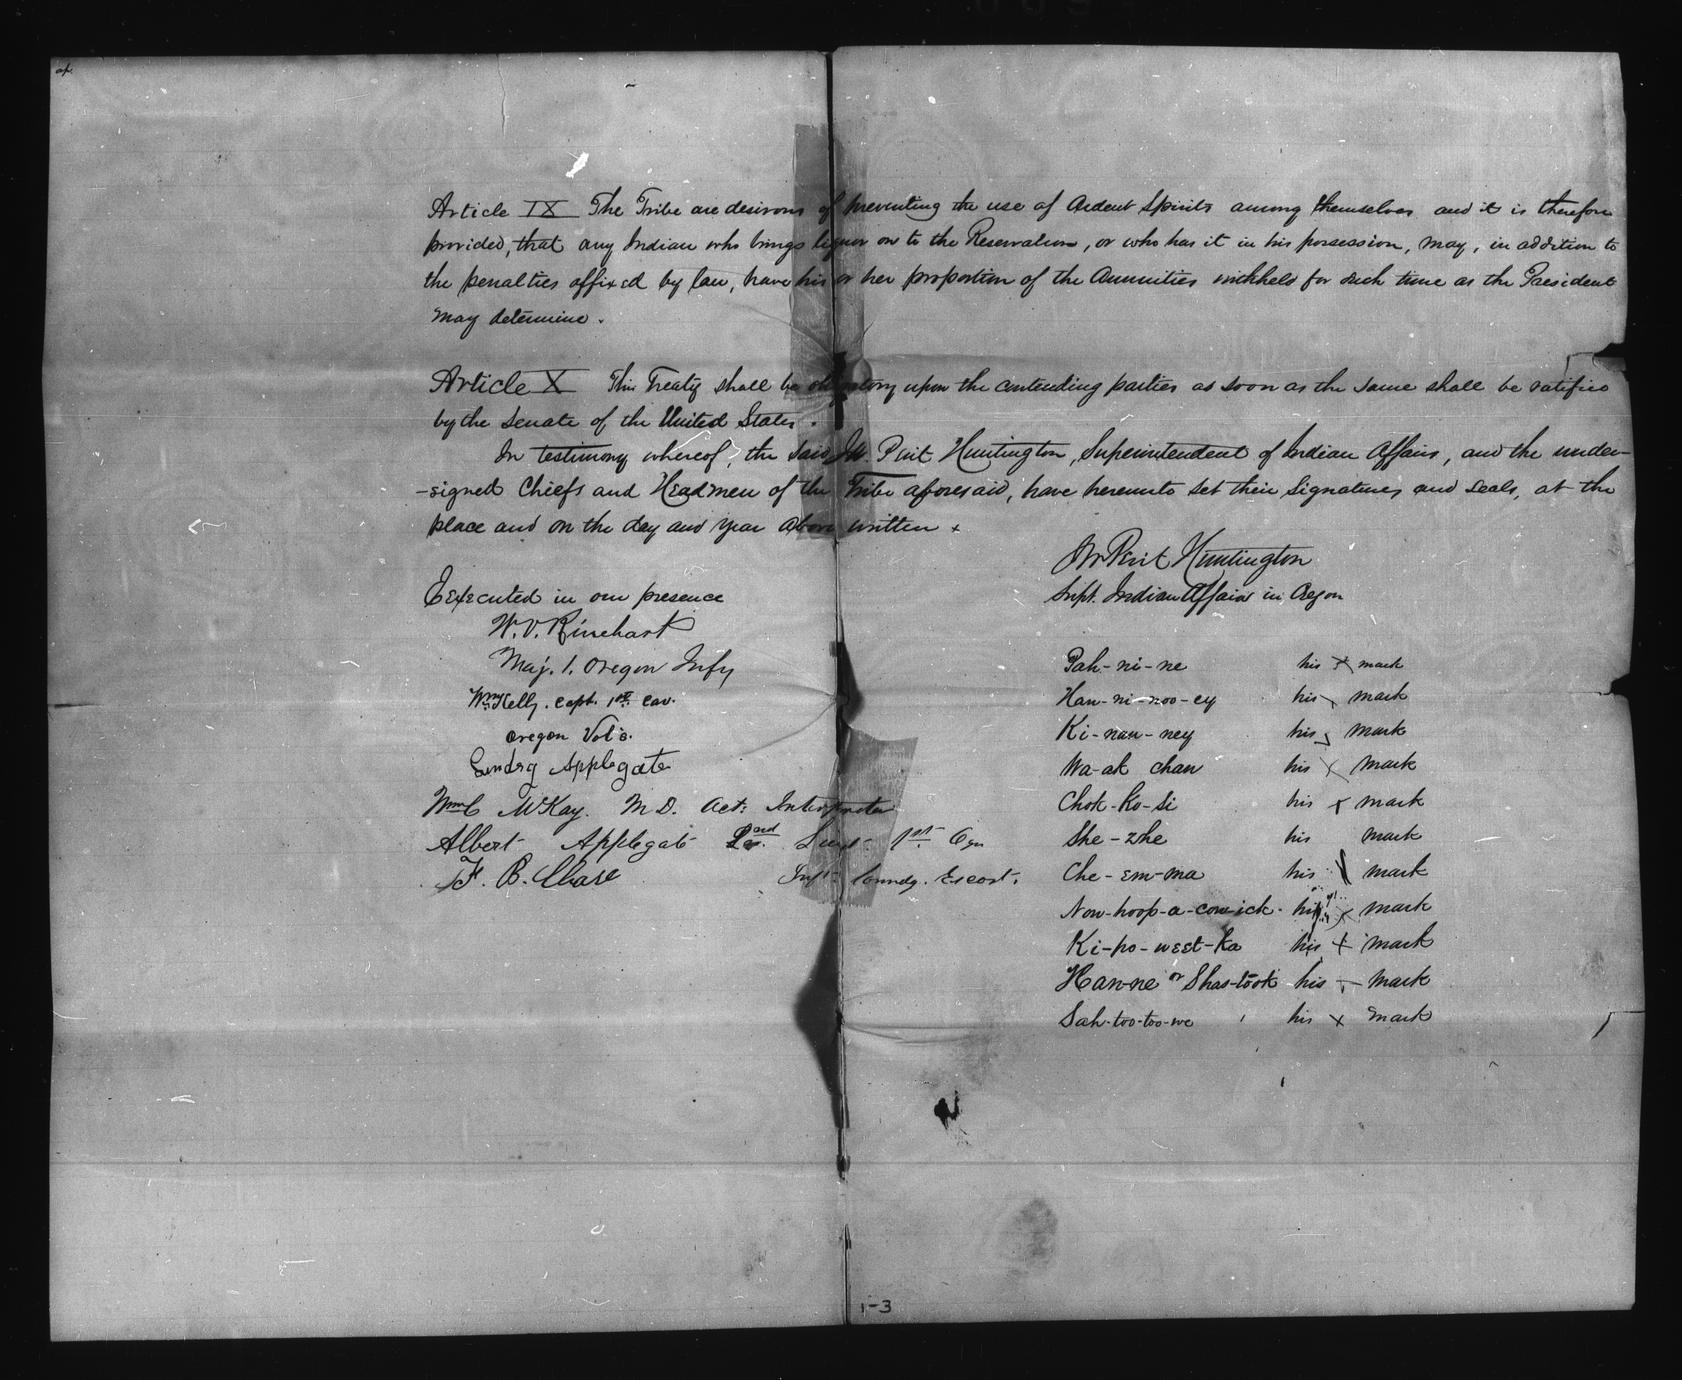 Article IX The Tribe are desirous of preventing the use of Ardent Spirits among themselves and it is therefore
provided, that any Indian who brings liquor on to the Reservation, or who has it in his possession, may, in addition to
the penalties affixed by law, have his or her proportion of the Annuities withheld for such time as the President
may determine.
Article X This Treaty shall be obligatory upon the contending parties as soon as the same shall be ratified
by the Senate of the United States.
In testimony whereof, the said J.W. Perit Huntington, Superintendent of Indian Affairs, and the under-
-signed Chiefs and Headmen of the Tribe aforesaid, have hereunto set their signatures and seals, at the
place and on the day and year above written
J W Perit Huntington
Supt. Indian Affairs in Oregon
Executed in our presence
W. V. Rinehart
Maj. 1. Oregon Infy
Wm Kelly. Capt. 1st Cav.
Oregon Vol's.
Lindsy Applegate
Wm C McKay. M D. Act: Interpreter
Albert Applegate 2nd Lieut. 1st Ogn
F. B. Chase Inft. Comdg. Escort.
Pah-ni-ne his x mark
Hau-ni-noo-ey his x mark
Ki-nau-ney his x mark
Wa-ak chau his x mark
Chok-ko-si his x mark
She-zhe his mark
Che-em-ma his x mark
Now-hoop-a-cow-ick. his x mark
Ki-po-west-ka his x mark
Han-ne or Shas-took his x mark
Sah-too-too-we his x mark
1-3